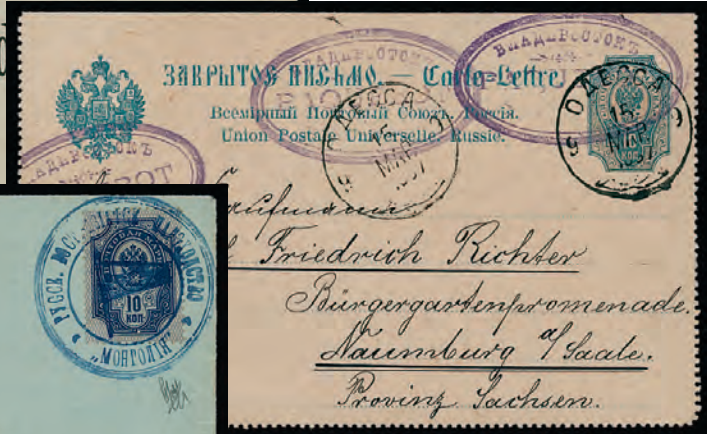 ЗАКРЫТОЕ ПИСЬМО. — Carte-Lettre
Всемірный Почтовый Союзъ. Россія.
Union Postale Universelle. Russie.
ВЛАДИВОСТОКЪ
ВЛАДИВОСТОКЪ
ВЛАДИВОСТОКЪ
ОДЕССА
15
МАР
1897
ОДЕССА
15
МАР
1897
10 КОП
Kaufmann
Friedrich Richter
Bürgergartenpromenade.
Naumburg a/Saale.
Provinz Sachsen.
РУССК. ВОСТ. АЗІАТСК. ПАРОХОДСТВО
„МОНГОЛІЯ"
10
КОП